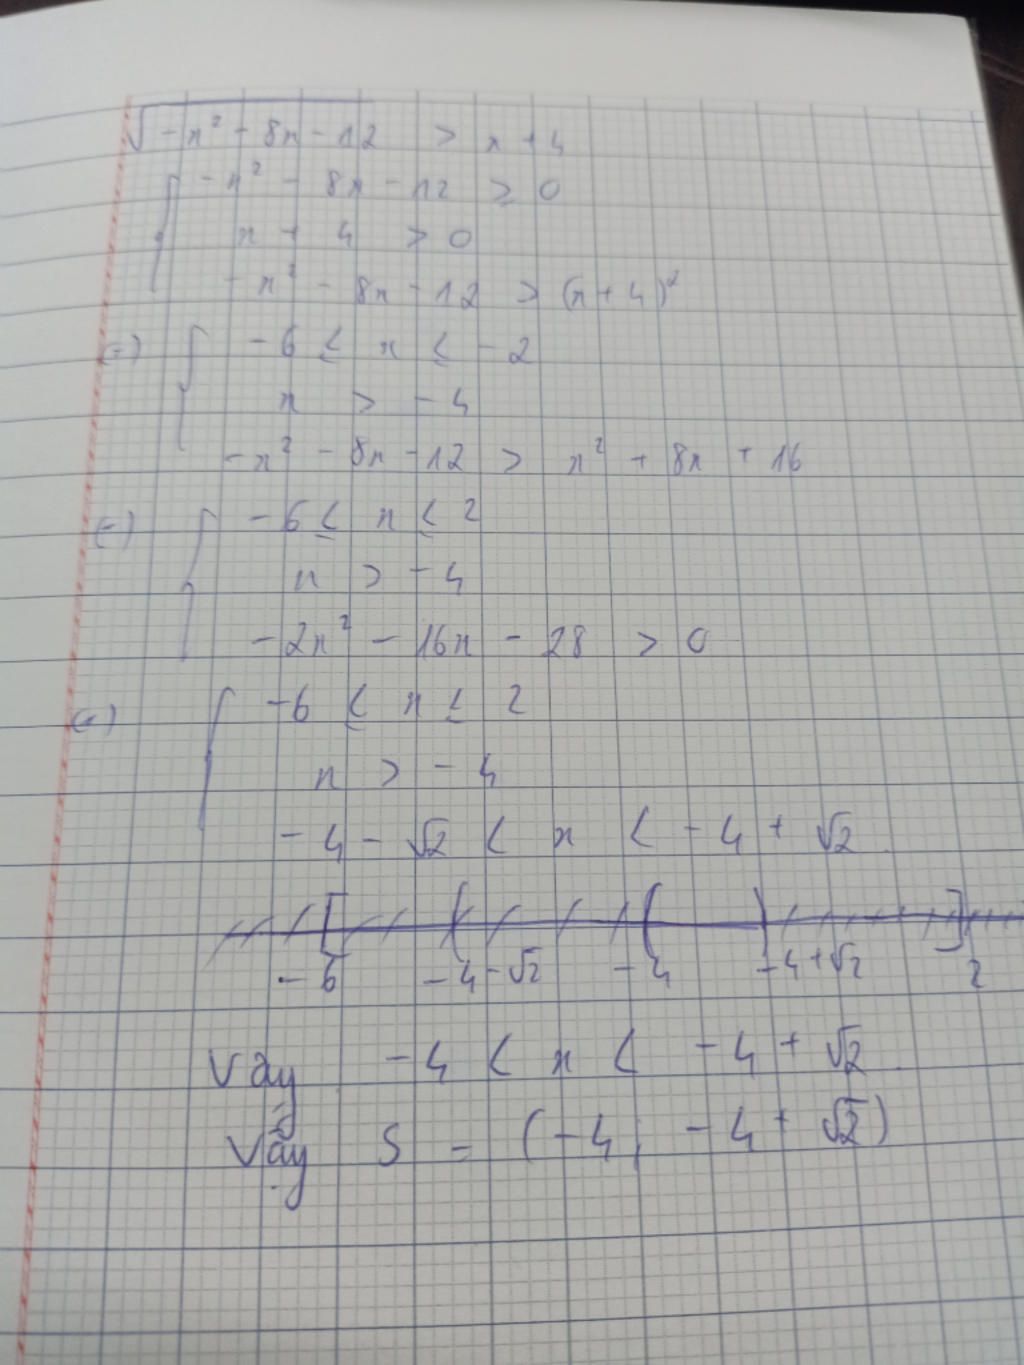 √(-x² - 8x - 12) > x + 4
{ -x² - 8x - 12 ≥ 0
x + 4 > 0
-x² - 8x - 12 > (x + 4)²
(=) { -6 ≤ x ≤ -2
x > -4
-x² - 8x - 12 > x² + 8x + 16
(=) { -6 ≤ x ≤ 2
x > -4
-2x² - 16x - 28 > 0
(=) { -6 ≤ x ≤ 2
x > -4
-4 - √2 < x < -4 + √2
[ ( ( ) ]
-6 -4-√2 -4 -4+√2 2
Vậy -4 < x < -4 + √2
Vậy S = (-4; -4 + √2)